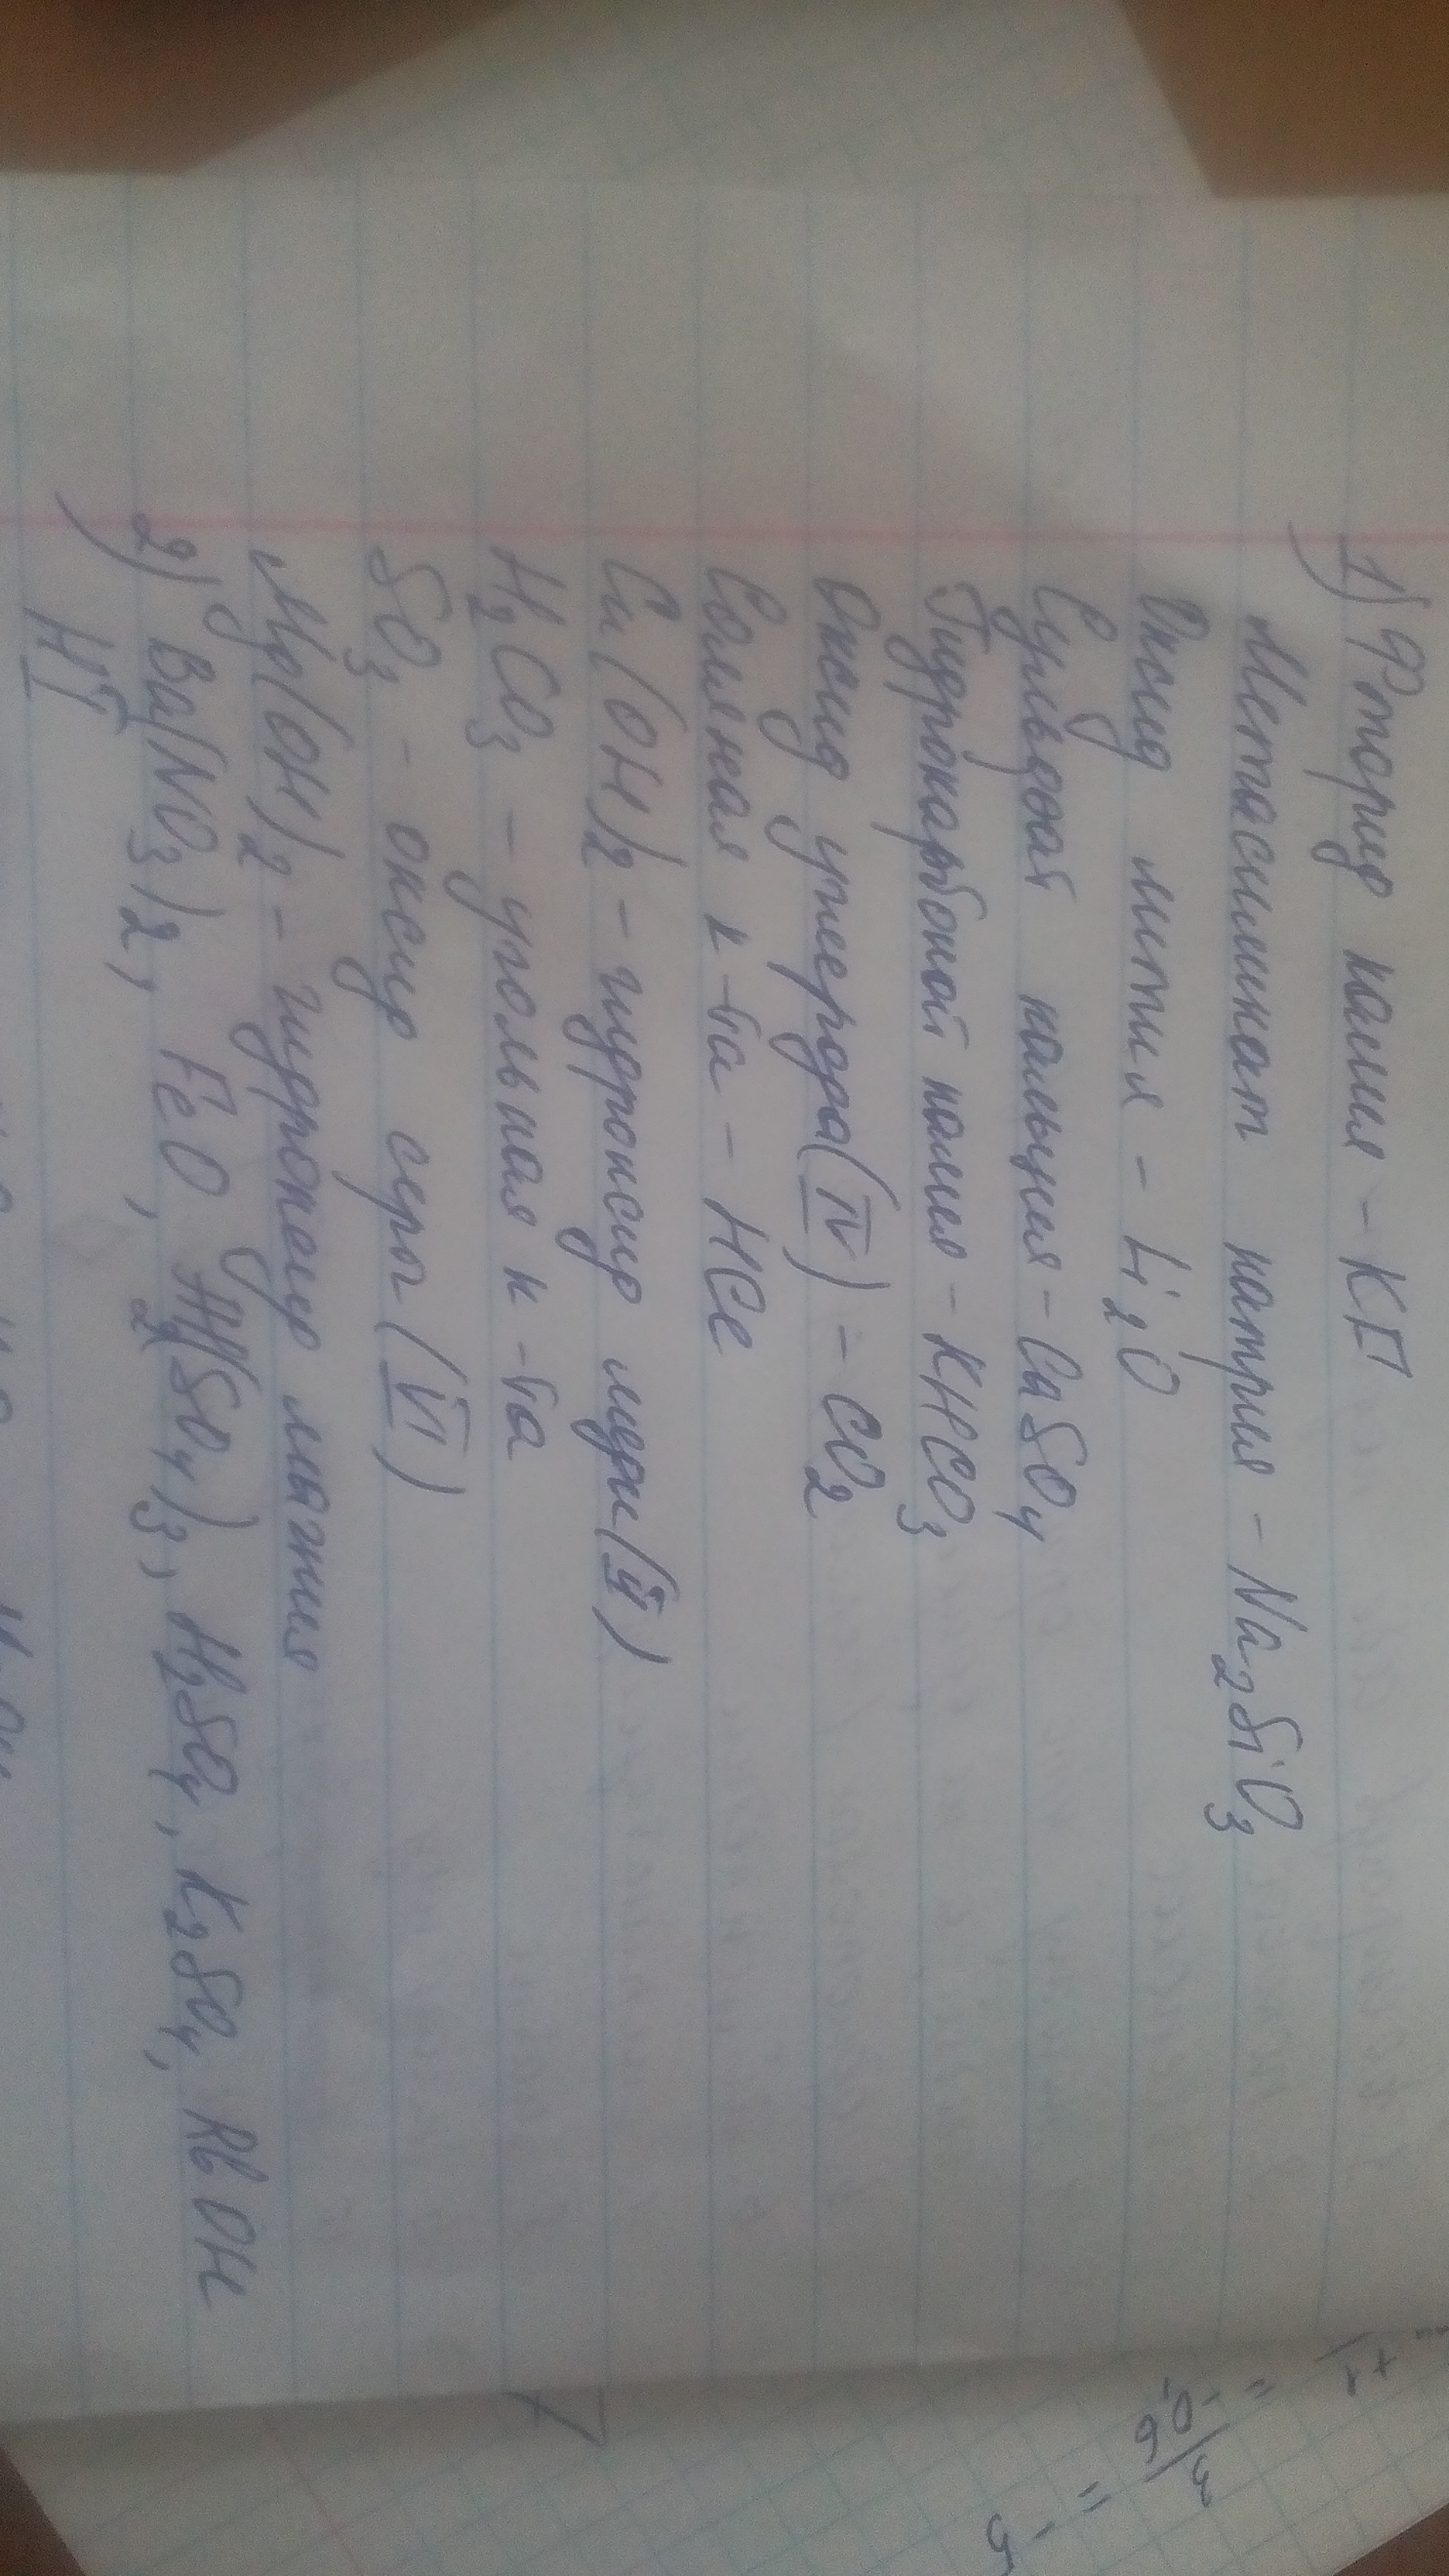 1) Фторид калия - KF
Метасиликат натрия - Na2SiO3
Оксид лития - Li2O
Сульфат кальция - CaSO4
Гидрокарбонат калия - KHCO3
Оксид углерода (IV) - CO2
Соляная к-та - HCl
Cu(OH)2 - гидроксид меди (II)
H2CO3 - угольная к-та
SO3 - оксид серы (VI)
Mg(OH)2 - гидроксид магния
2) Ba(NO3)2, FeO, (SO4)3, H2SO4, K2SO4, RbOH
HI
+1 =
-6
3
= -5